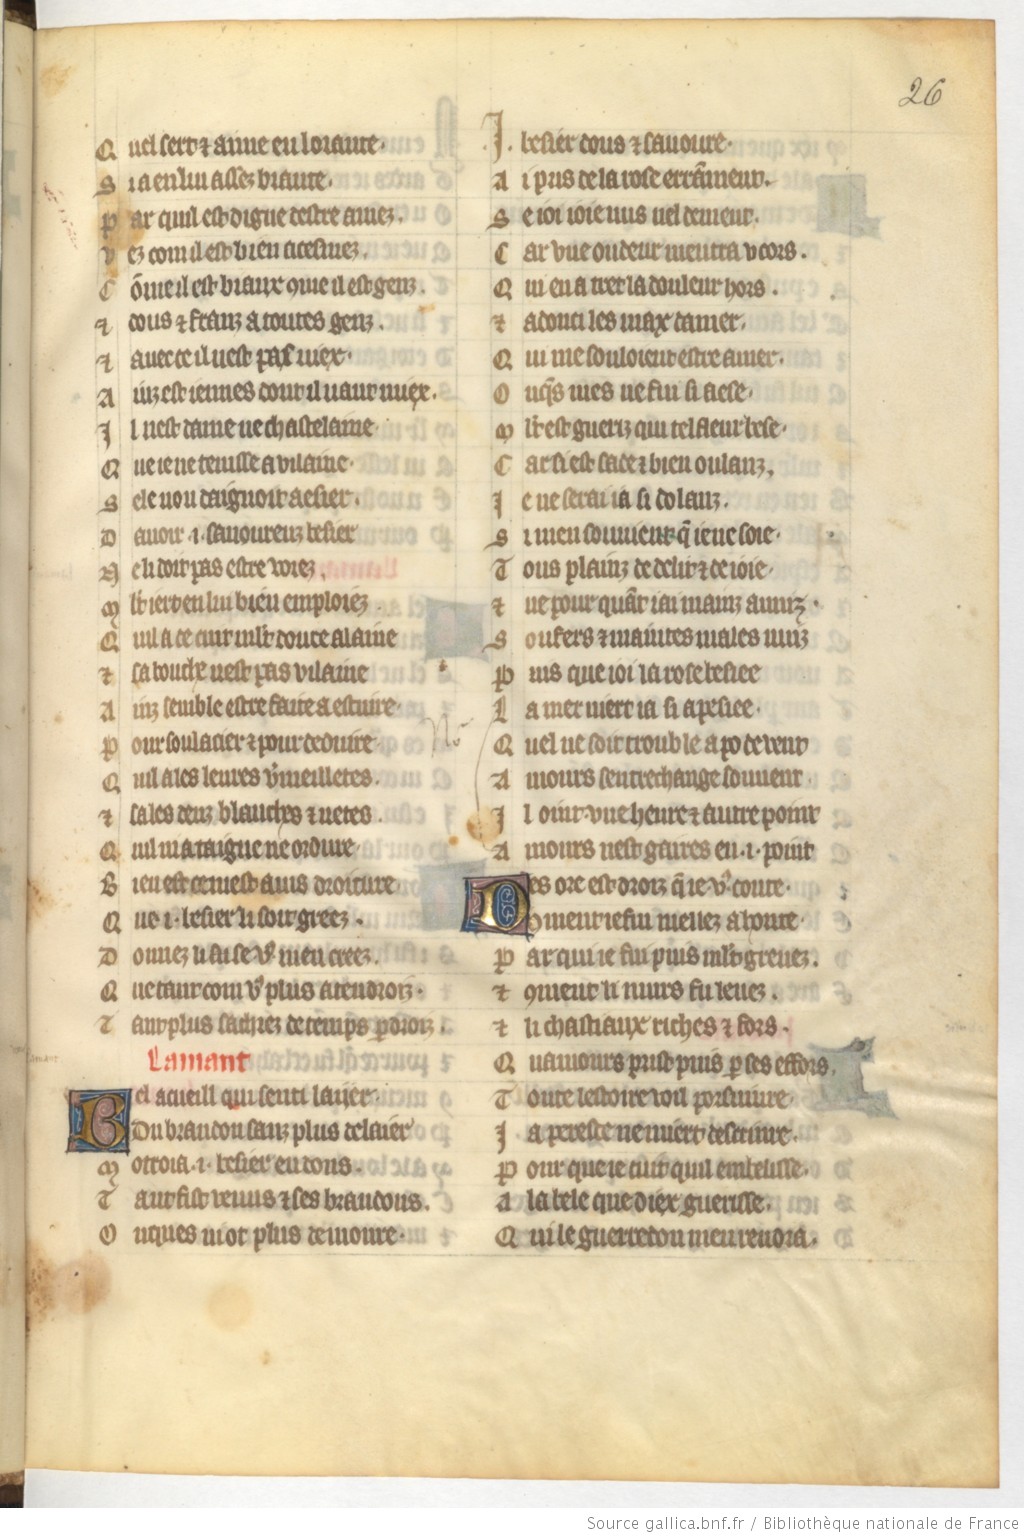 26
Quel sert ⁊ aime en loiaute.
Sia en lui assez biaute.
Par quil est digne destre amez.
Vez com il est bien acesmez.
Cōme il est biaux ꝯme il est genz.
⁊ dous ⁊ franz a toutes genz.
⁊ auec ce il nest pas viex.
Ainz est iennes dont il uaut miex.
Il nest dame ne chastelaine
Que ie ne tenisse a vilaine.
Sele nou daignoit aesier.
Dauoir .i. sauoureus besier
Ne li doit pas estre veez.
Mlt iert en lui bien emploiez.
Quil a ce cuit mlt douce alaine
⁊ sa bouche nest pas vilaine
Ainz semble estre faite a estuire.
Pour soulacier ⁊ pour deduire.
Quil a les leures ṽmeilletes.
⁊ sales denz blanches ⁊ netes.
Quil ni a taigne ne ordure.
Bien est ce mest auis droiture
Que .i. besier li soit greez.
Donnez li fuse vꝰ men creez.
Que tant com vꝰ plus atendroiz.
Tant plus sachiez de temps ꝑdroiz.
Lamant
Bel acueill qui senti laijer.
Du brandon sanz plus delaier
Motroia .i. besier en dons.
Tant fist venus ⁊ ses brandons.
Onques niot plus demoure.
.I. besier dous ⁊ sauoure.
Ai pris de la rose errāment.
Se ioi ioie nus nel dement.
Car vne oudeur mentra v cors.
Qui en a tret la douleur hors.
⁊ adouci les max damer.
Qui me souloient estre amer.
Onq̄s mes ne fui si aese.
Mlt est gueriz qui tel fleur bese.
Car si est sade ⁊ bien oulanz.
Ie ne serai ia si dolanz.
Si men souuient q̄ ie ne soie.
Touz plainz de delit ⁊ de ioie.
⁊ ne pour quāt iai mainz anniz.
Soufers ⁊ maintes males nuiz
Puis que ioi la rose besiee
La mer niert ia si apesiee.
No
Quel ne soit trouble a po de vent
Amours sentrechange souuent.
Il oint vne heure ⁊ autre point
Amours nest gaires en .i. point
Des ore est droiz q̄ ie vꝰ conte.
Coment ie fui mellez a honte.
Par qui ie fui puis mlt greuez.
⁊ ꝯment li murs fu leuez.
⁊ li chastiaux riches ⁊ fors.
Quamours prist puis ꝑ ses effors.
Toute lestoire voil porsiuire.
Ia perece ne miert descriure.
Pour que ie cuit quil embelisse.
A la bele que diex guerisse.
Qui le guerredon men rendra.
Source gallica.bnf.fr / Bibliothèque nationale de France